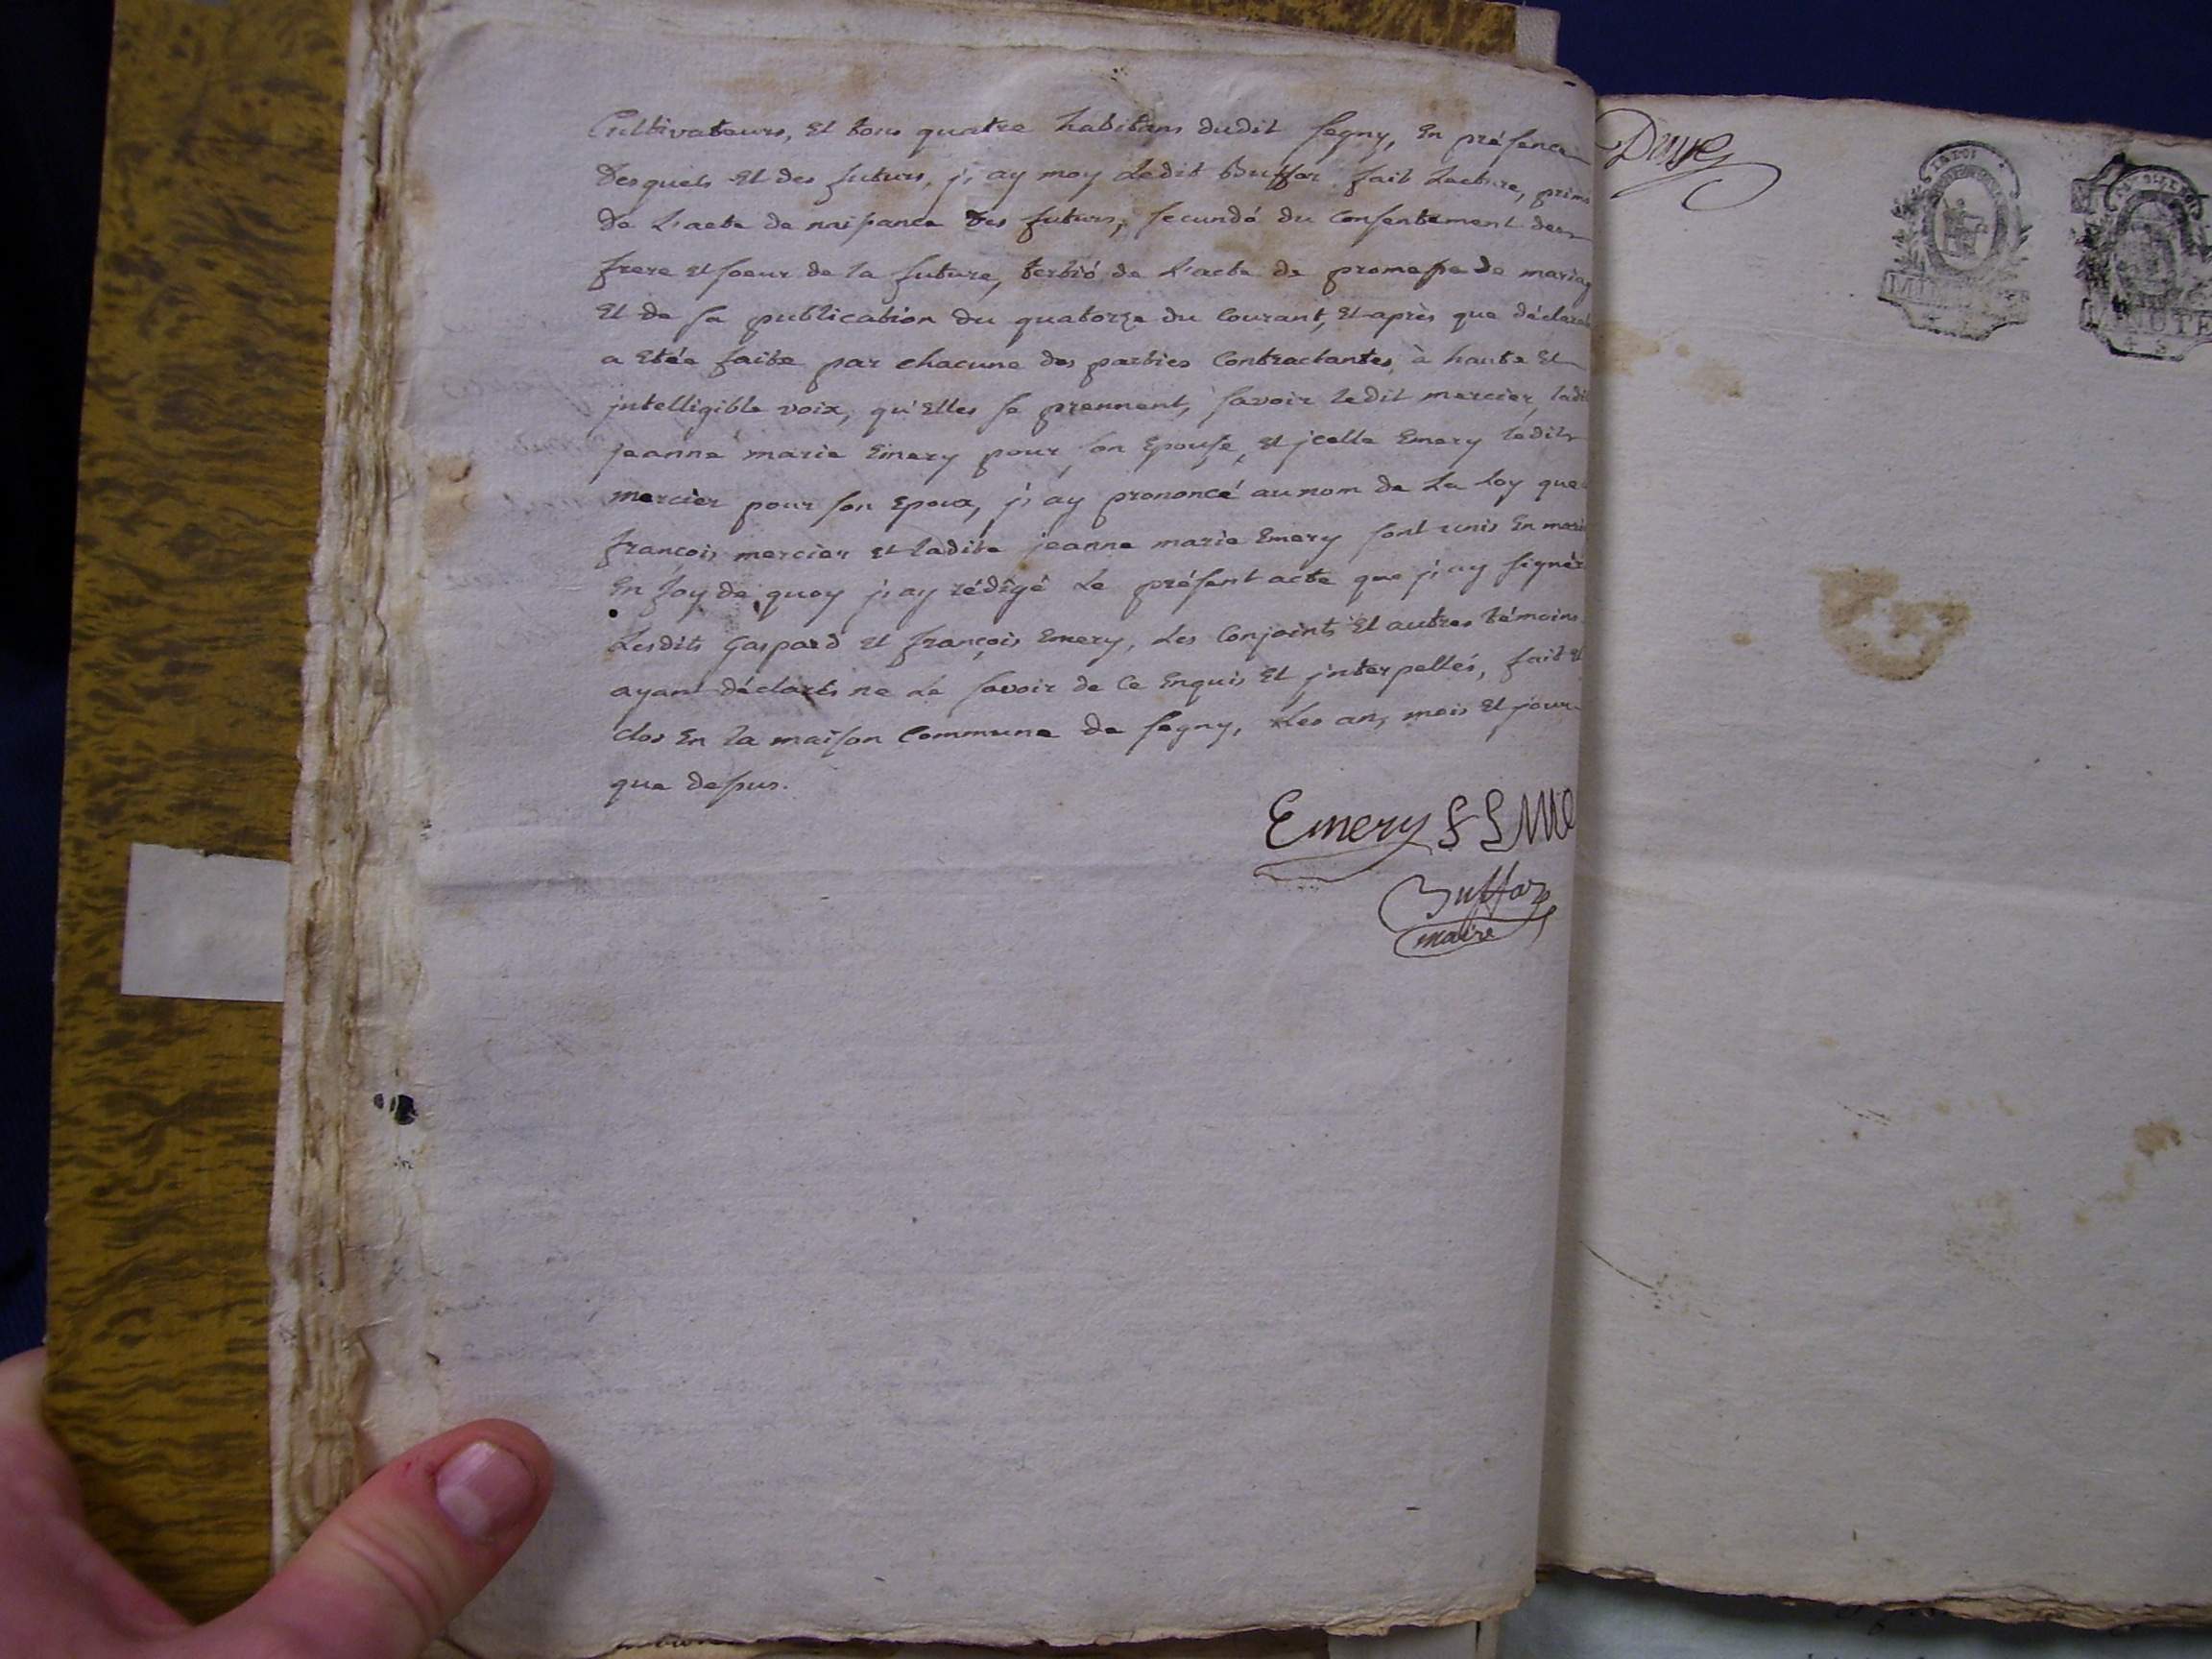 Cultivateurs, et tous quatre habitans dudit segny, En présence
desquels et des futurs, j'ay moy Ledit Buffar fait Lecture, primo
de L'acte de naissance des futurs, secundó du consentement des
frere et soeur de la future, tertió de L'acte de promesse de mariag
Et de sa publication du quatorze du Courant, Et après que déclarat
a Etée faite par chacune des parties Contractantes, à haute Et
jntelligible voix, qu'Elles se prennent, savoir Ledit mercier, ladit
jeanne marie Emery pour son Epouse, et jcelle Emery ledit
mercier pour son Epoux, j'ay prononcé au nom de La Loy que
françois mercier et ladite jeanne marie Emery sont unis En mari
En foy de quoy j'ay rédigé Le présent acte que j'ay signé
Lesdits Gaspard et françois Emery, Les Conjoints Et autres témoins
ayant déclarés ne Le savoir de Ce Enquis Et jnterpellés, fait et
clos En la maison Commune de segny, Les an, mois Et jour
que dessus.
Emery
Buffar
maire
LA LOI
MINUTE
MINUTE